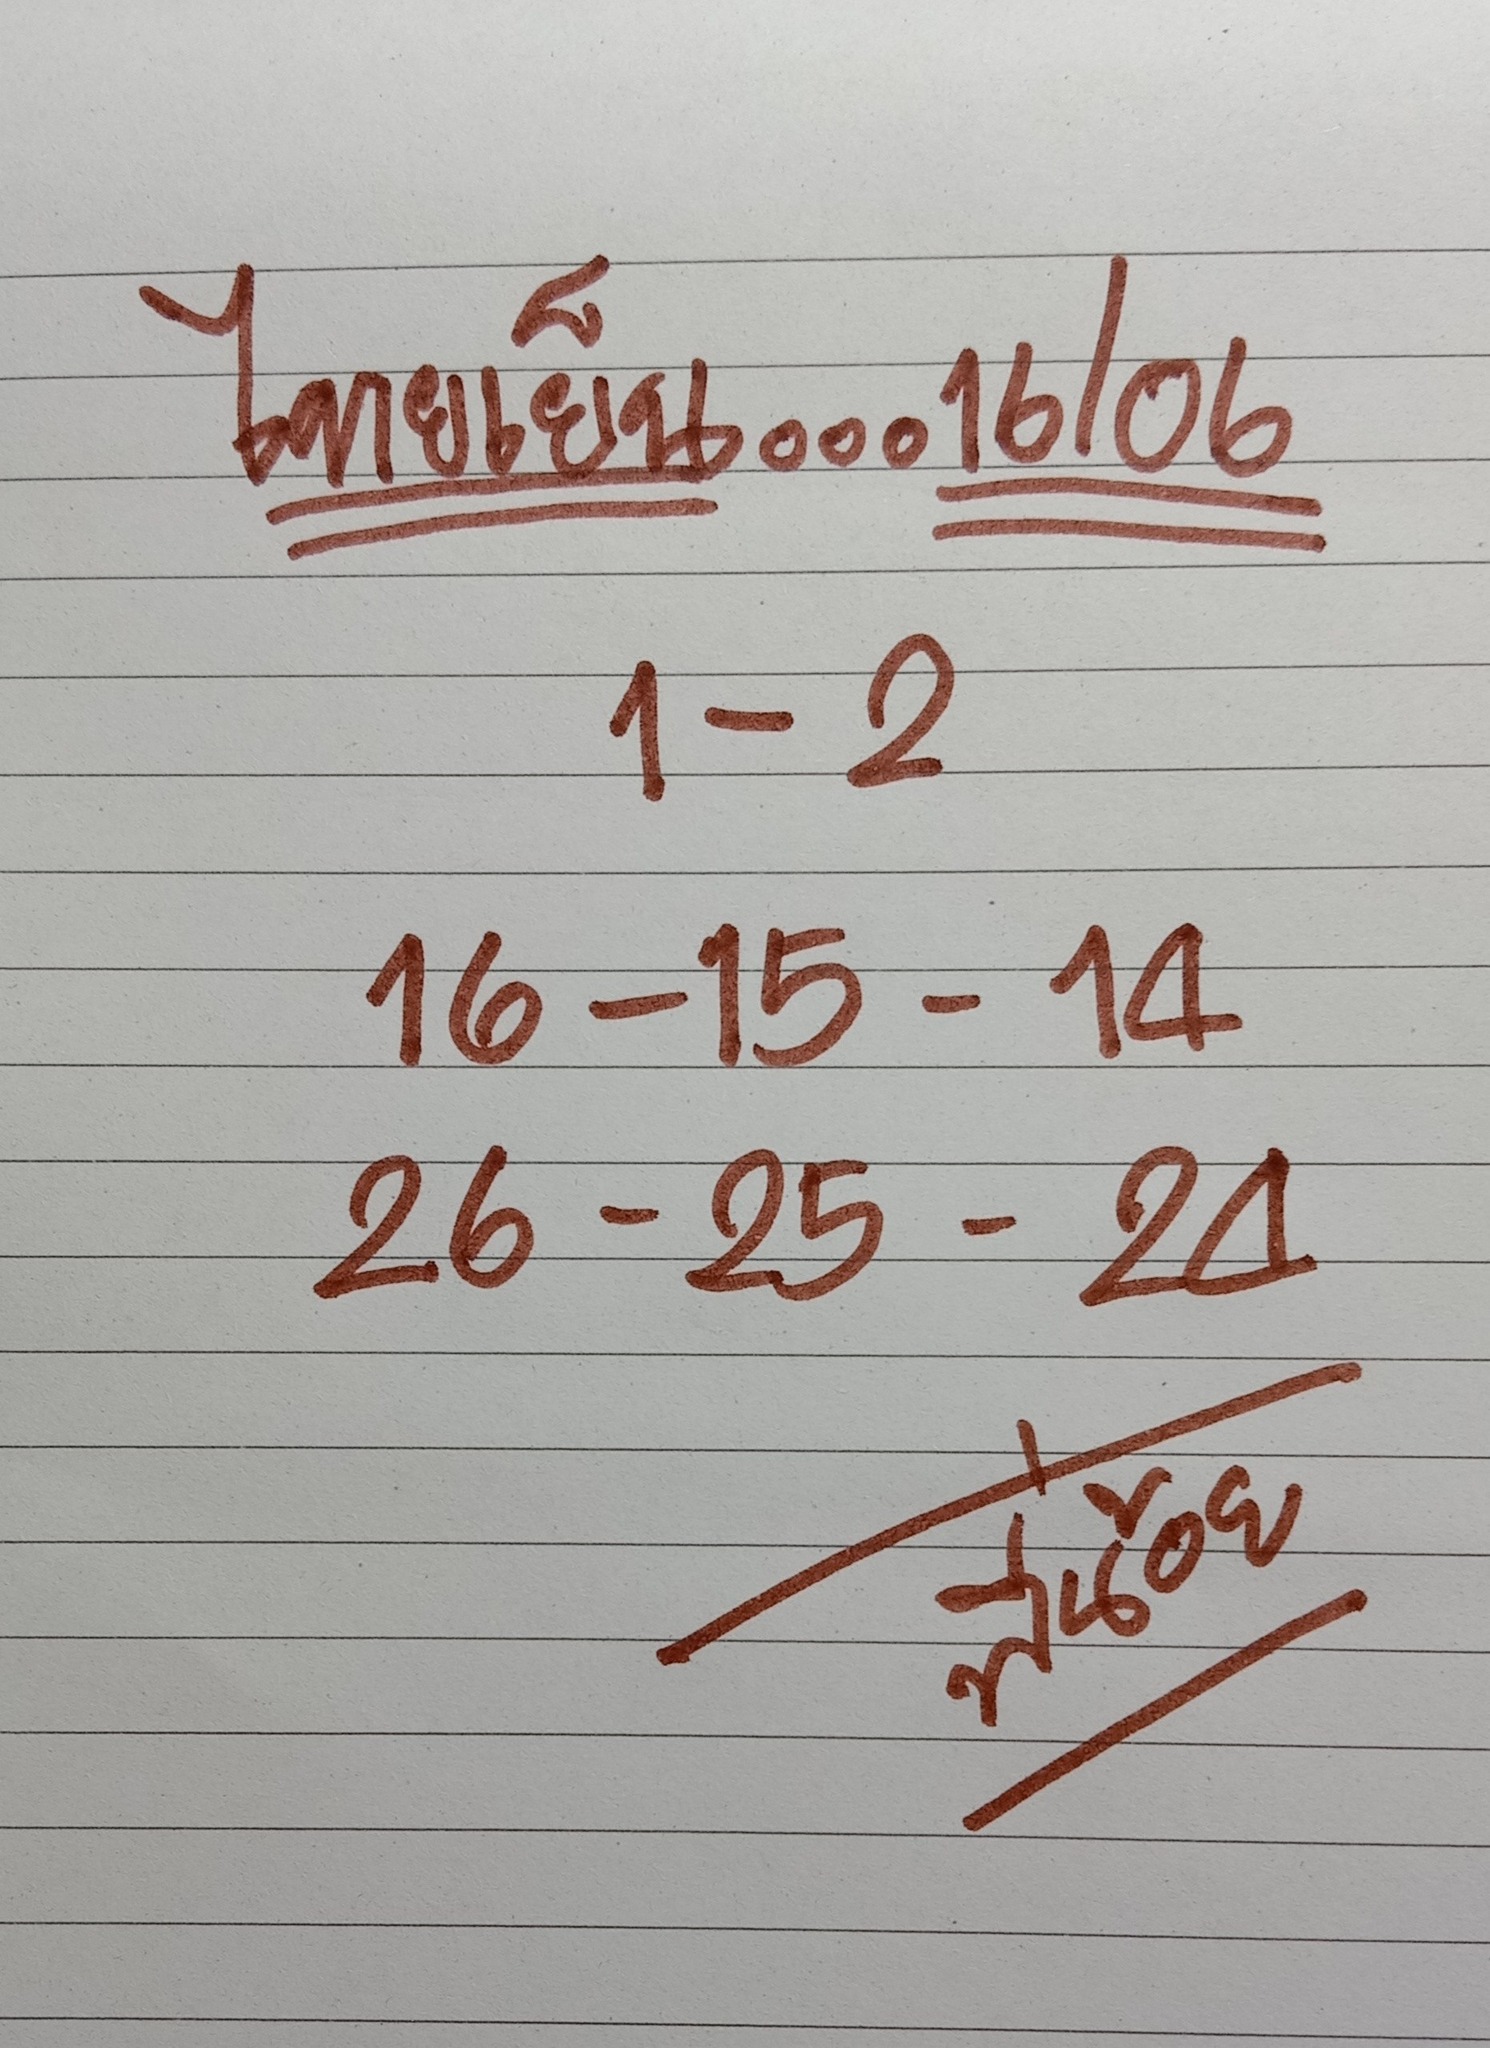 ไทยเย็น...16/06
1-2
16-15-14
26-25-24
พี่น้อย